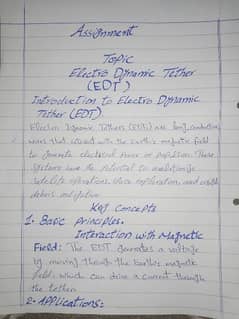 Assignment
Topic
Electro Dynamic Tether
(EDT)
Introduction to Electro Dynamic
Tether (EDT)
Electro Dynamic Tethers (EDTs) are long, conductive
wires that interact with the Earth's magnetic field
to generate electrical power or propulsion. These
systems have the potential to revolutionize
satellite operations, space exploration, and orbital
debris mitigation.
Key Concepts
1. Basic Principles.
Interaction with Magnetic
Field: The EDT generates a voltage
by moving through the Earth's magnetic
field, which can drive a current through
the tether.
2. Applications: